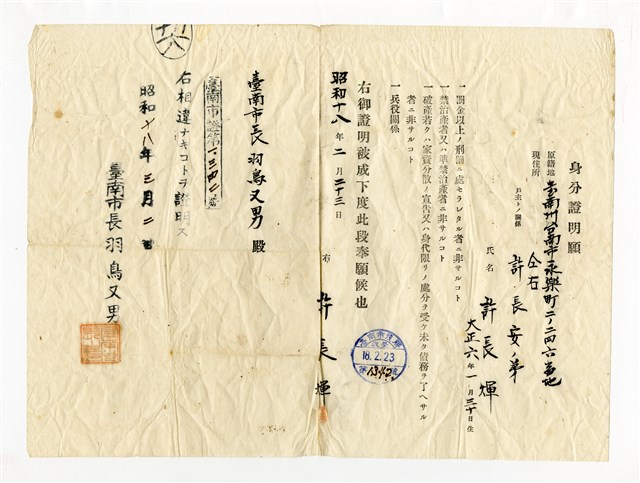 身分證明願
原籍地 台南州台南市永樂町二ノ二四六番地
現住所 仝右
戶主トノ關係 許長安ノ弟
氏名 許長輝
大正六年一月三十日生
一罰金以上ノ刑罰ニ處セラレタル者ニ非サルコト
一禁治產者又ハ準禁治產者ニ非サルコト
一破產若クハ家資分散ノ宣告又ハ身代限リノ處分ヲ受ケ未タ債務ヲ了ヘサル
者ニ非サルコト
一兵役關係
右御證明被成下度此段奉願候也
昭和十八年二月二十三日
右 許長輝
臺南市長羽鳥又男殿
18.2.23
臺南市證第一三四二號
右相違ナキコトヲ證明ス
昭和十八年三月二日
臺南市長羽鳥又男